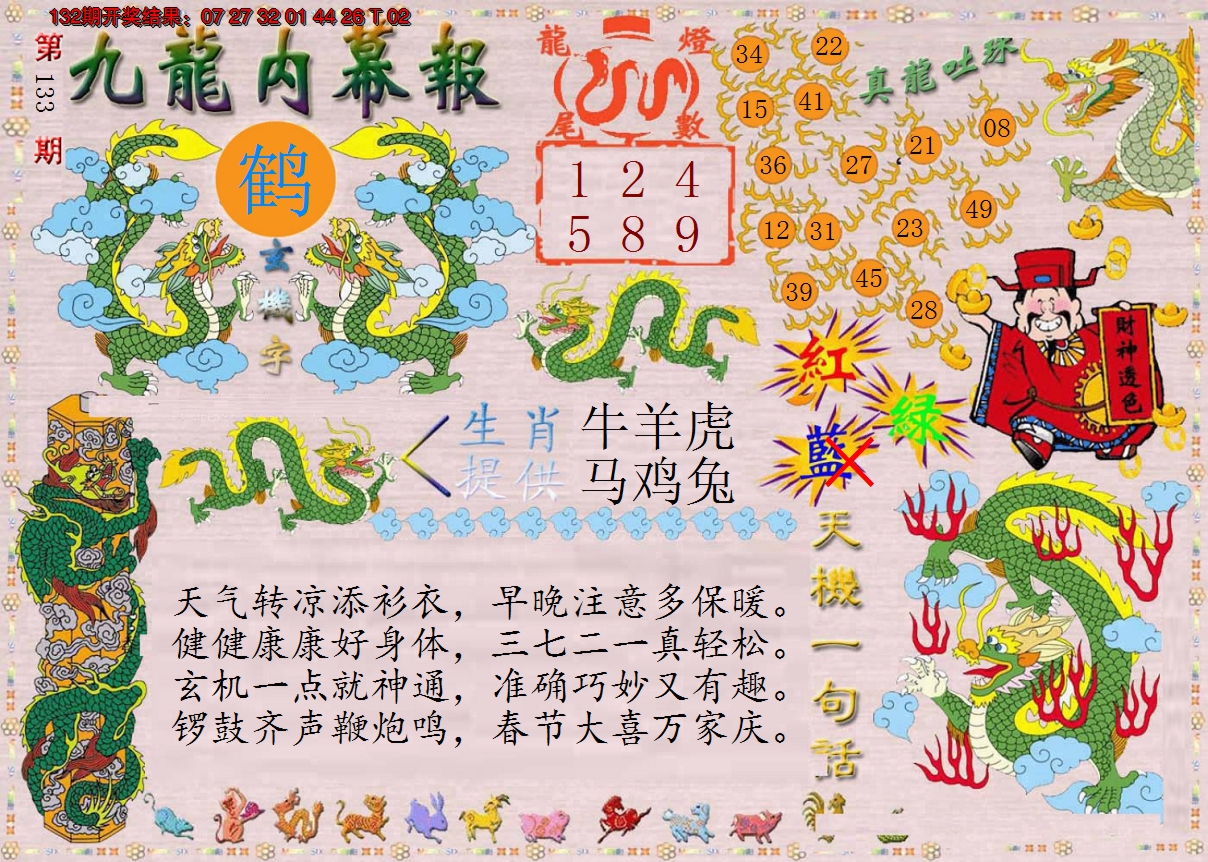 132期开奖结果：07 27 32 01 44 26 T 02
第133期
九龍内幕報
鹤
玄機字
龍燈尾數
1 2 4
5 8 9
真龍吐珠
34
22
15
41
36
27
21
08
12
31
23
49
39
45
28
財神透色
紅
綠
藍
生肖提供
牛羊虎
马鸡兔
天機一句話
天气转凉添衫衣，早晚注意多保暖。
健健康康好身体，三七二一真轻松。
玄机一点就神通，准确巧妙又有趣。
锣鼓齐声鞭炮鸣，春节大喜万家庆。